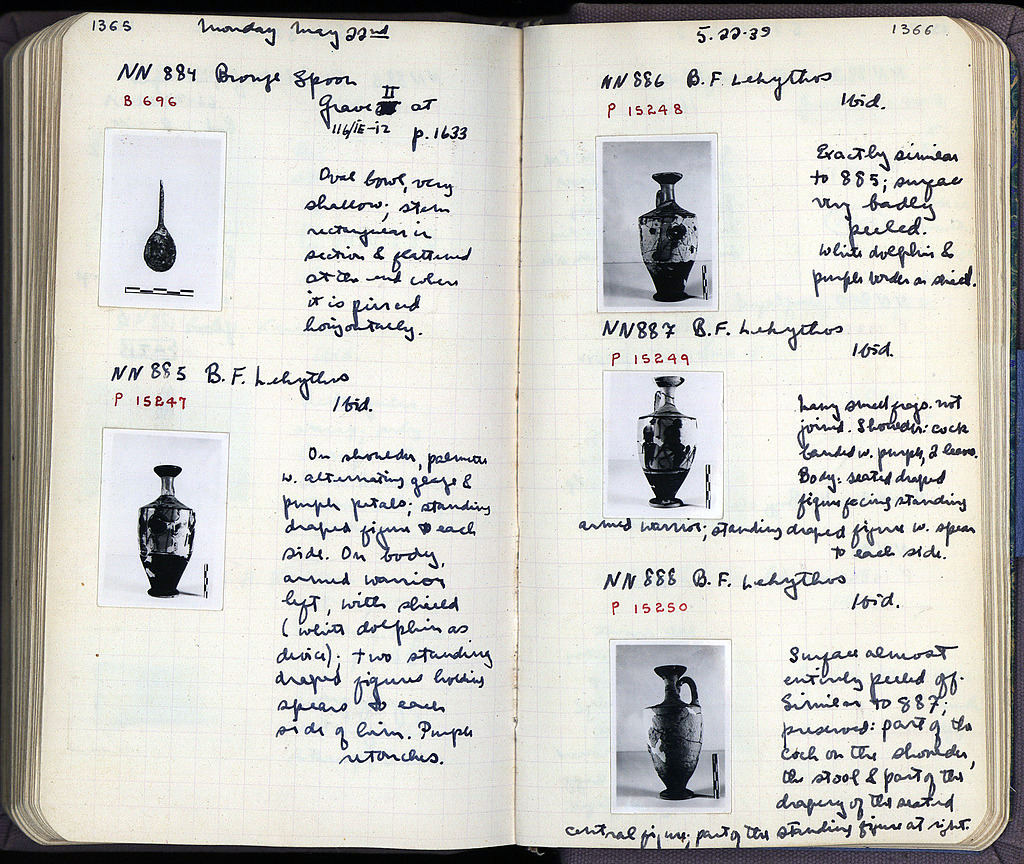 1365
Monday May 22nd
NN 884 Bronze Spoon
B 696
Grave II at
116/IE-12
p. 1633
Oval bowl, very
shallow; stem
rectangular in
section & flattened
at the end where
it is pierced
horizontally.
NN 885 B.F. Lekythos
P 15247
Ibid.
On shoulder, palmettes
w. alternating glaze &
purple petals; standing
draped figure to each
side. On body,
armed warrior
left, with shield
(white dolphin as
device); two standing
draped figures holding
spears to each
side of him. Purple
retouches.
5.22.39
1366
NN 886 B.F. Lekythos
P 15248
Ibid.
Exactly similar
to 885; surface
very badly
peeled.
White dolphin &
purple border on shield.
NN 887 B.F. Lekythos
P 15249
Ibid.
Many small frags. not
joined. Shoulder: cock
banded w. purple, 2 leaves.
Body: seated draped
figure facing standing
armed warrior; standing draped figure w. spear
to each side.
NN 888 B.F. Lekythos
P 15250
Ibid.
Surface almost
entirely peeled off.
Similar to 887;
preserved: part of the
cock on the shoulder,
the stool & part of the
drapery of the seated
central figure; part of the standing figure at right.